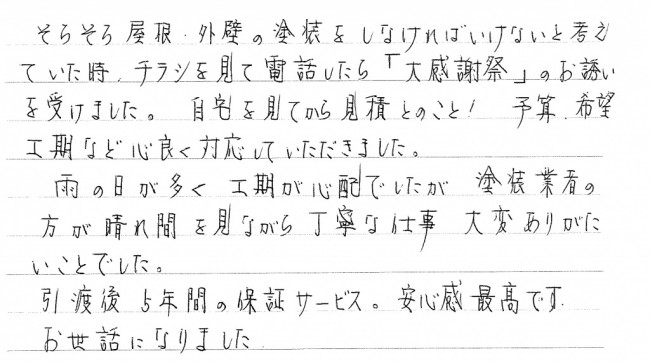 そろそろ屋根・外壁の塗装をしなければいけないと考え
ていた時、チラシを見て電話したら「大感謝祭」のお誘い
を受けました。 自宅を見てから見積とのこと! 予算、希望
工期など心良く対応していただきました。
雨の日が多く 工期が心配でしたが 塗装業者の
方が晴れ間を見ながら丁寧な仕事 大変ありがた
いことでした。
引渡後 5年間の保証サービス。安心感最高です.
お世話になりました.